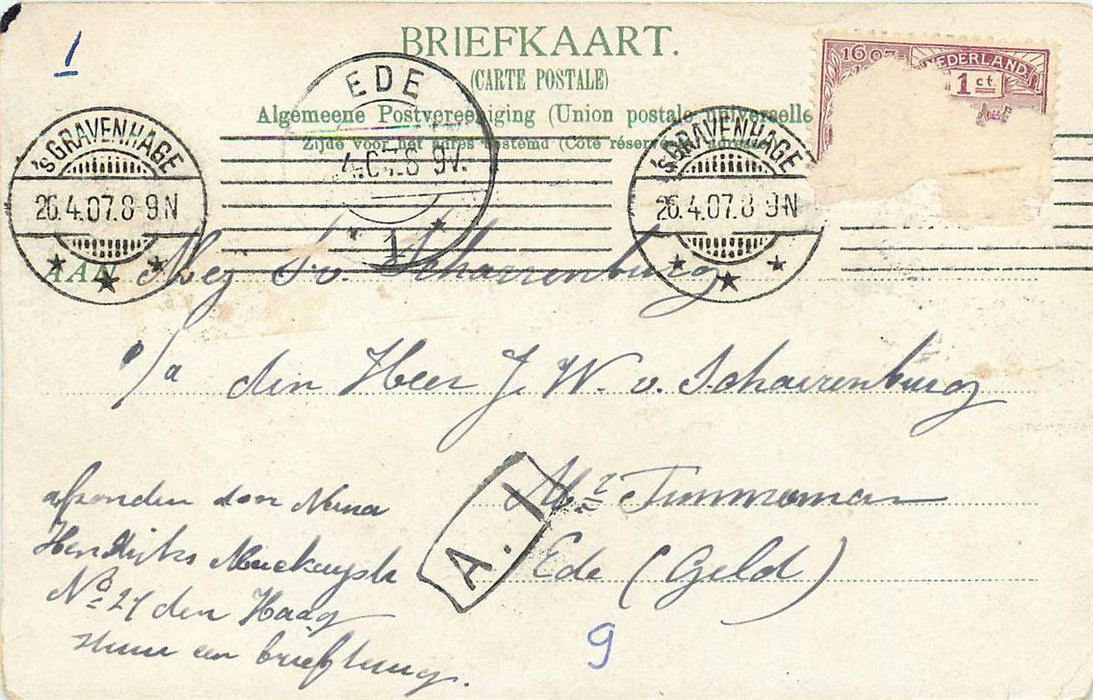 1
BRIEFKAART.
(CARTE POSTALE)
Algemeene Postvereeniging (Union postale universelle
Zijde voor het adres bestemd (Côté réservé
1607
NEDERLAND
1 ct.
EDE
4.07.8 9V.
1
'sGRAVENHAGE
26.4.07.8 9N
'sGRAVENHAGE
26.4.07.8 9N
AAN Mej v. Scharrenburg
p/a den Heer J. W. v. Scharrenburg
Mr Timmerman
Ede (Geld)
A. I
afzonden door
Hendriks
No 21 den Haag
stuur een brief terug.
9